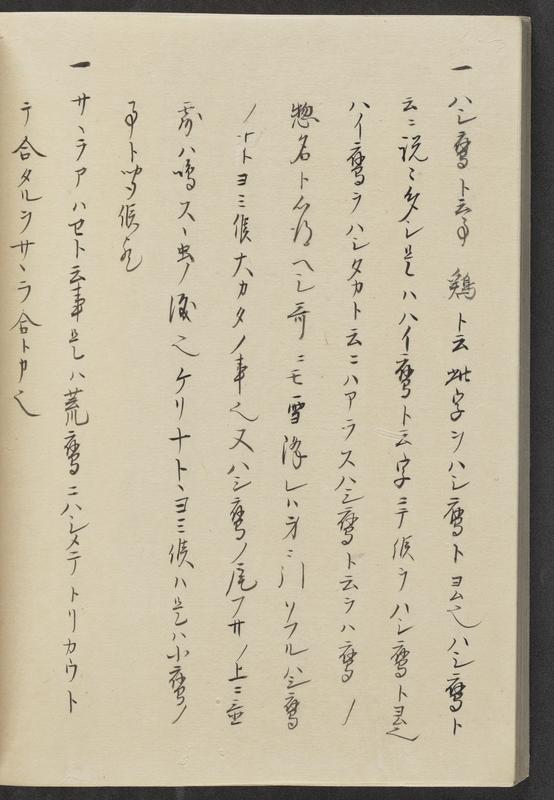 一 ハシ鷹ト云事 鷂ト云此字ヲハシ鷹トヨム也ハシ鷹ト
云ニ説々多シ是ハハイ鷹ト云字ニテ候ヲハシ鷹トヨム也
ハイ鷹ヲハシタカト云ニハアラスハシ鷹ト云ヲハ鷹ノ
惣名ト心得ヘシ哥ニモ雪降レハ身ニ引ソフルハシ鷹
ノナトヨミ候大カタノ事也又ハシ鷹ノ尾フサノ上ニ
ハ鳴スヽ虫ノ ケリナトヽヨミ候ハ是ハ小鷹ノ
事ト聞候
一 サヽラアハセト云事是ハ荒鷹ニハシメテトリカウト
テ合タルヲサヽラ合トカ也